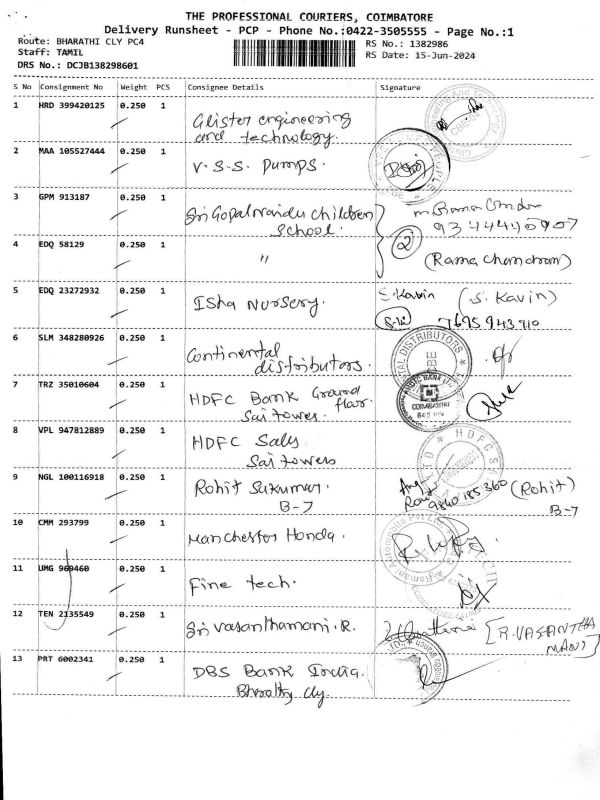 THE PROFESSIONAL COURIERS, COIMBATORE
Delivery Runsheet - PCP - Phone No.:0422-3505555 - Page No.:1
Route: BHARATHI CLY PC4
Staff: TAMIL
DRS No.: DCJB138298601
RS No.: 1382986
RS Date: 15-Jun-2024
S No Consignment No Weight PCS Consignee Details Signature
1 HRD 399420125 0.250 1 Glister engineering
and technology.
2 MAA 105527444 0.250 1 V.S.S. Pumps.
3 GPM 913187 0.250 1 Sri Gopal Naidu Children
School.
9344440907
4 EDQ 58129 0.250 1 " 2
(Rama Chandram)
5 EDQ 23272932 0.250 1 Isha Nursery. S. Kavin (S. Kavin)
7695943910
6 SLM 348280926 0.250 1 Continental
distributors.
7 TRZ 35010604 0.250 1 HDFC Bank Ground
floor.
Sai tower.
COIMBATORE
8 VPL 947812889 0.250 1 HDFC Sales
Sai towers
9 NGL 100116918 0.250 1 Rohit Sukumar. (Rohit)
B-7 9840185360 B-7
10 CMM 293799 0.250 1 Manchester Honda.
11 UMG 969460 0.250 1 Fine tech.
12 TEN 2135549 0.250 1 Sri Vasanthamani. R. [R. VASANTHA
MANI]
13 PRT 6002341 0.250 1 DBS Bank India.
Bharathy cly.